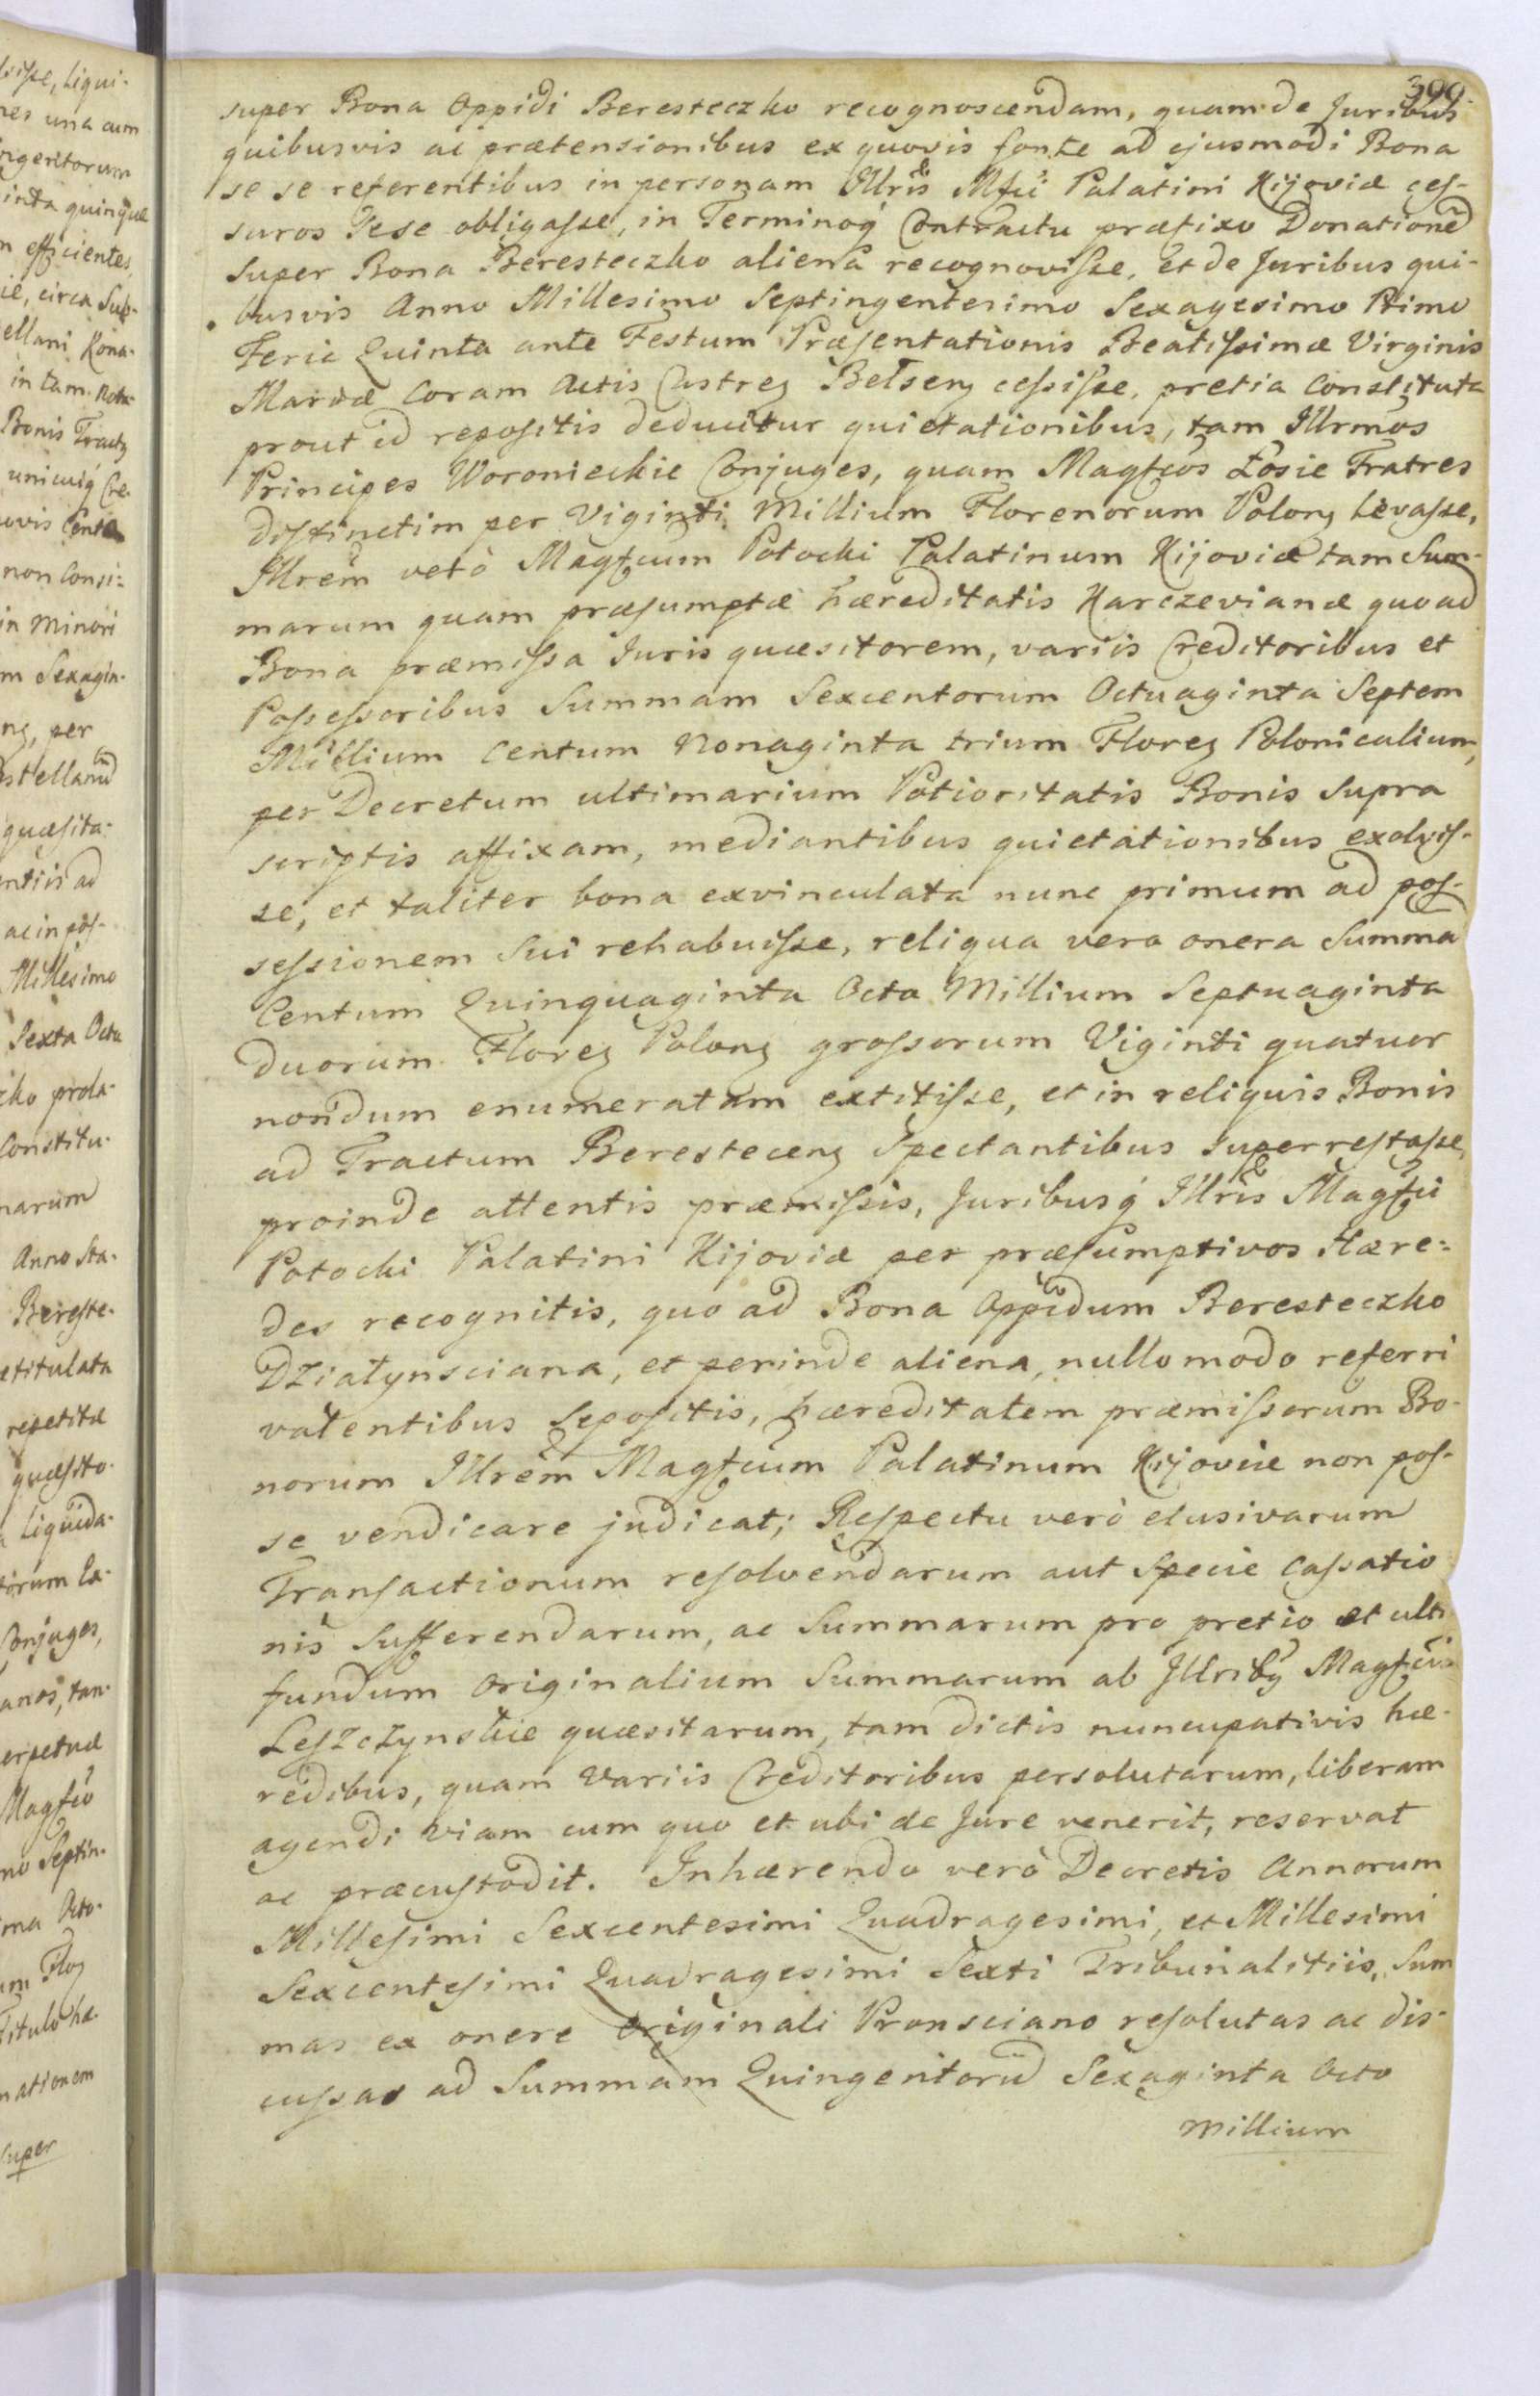 399.
super Bona Oppidi Beresteczko recognoscendam, quam de Juribus
quibusvis ac prætensionibus ex quovis fonte ad ejusmodi Bona
se se referentibus in personam Illris Mfci Palatini Kijoviæ ces-
suros sese obligasse, in Terminoq́ Contractu præfixo Donationem̃
super Bona Beresteczko aliena recognovisse, et de Juribus qui-
busvis Anno Millesimo Septingentesimo Sexagesimo Primo
Feria Quinta ante Festum Præsentationis Beatissimæ Virginis
Mariæ Coram Actis Castreɳ Belseɳ cessisse, pretia constituta
prout id repositis deducitur quietationibus, tam Illrmos
Principes Woronieckie Conjuges, quam Magfcos Łosie Fratres
distinctim per Viginti Millium Florenorum Poloɳ levasse,
Illrem verò Magfcum Potocki Palatinum Kijoviæ tam Sum-
marum quam præsumptæ hæreditatis Karczevianæ quoad
Bona præmissa Juris quæsitorem, variis Creditoribus et
Possessoribus Summam Sexcentorum Octuaginta Septem
Millium Centum Nonaginta trium Floreɳ Polonicalium,
per Decretum ultimarium Potioritatis Bonis supra
scriptis affixam, mediantibus quietationibus exolvis-
se, et taliter bona exvinculata nunc primum ad pos-
sessionem sui rehabuisse, reliqua vero onera Summa
Centum Quinquaginta Octo Millium Septuaginta
duorum Floreɳ Poloɳ grossorum Viginti quatuor
nondum enumeratam extitisse, et in reliquis Bonis
ad Tractum Beresteceɳ Spectantibus superrestasse,
proinde attentis præmissis, Juribusq́ Illris Magfci
Potocki Palatini Kijoviæ per præsumptivos Hære-
des recognitis, quo ad Bona Oppidum Beresteczko
Działynsciana, et perinde aliena, nullo modo referri
valentibus sepositis, hæreditatem præmissorum Bo-
norum Illrem Magfcum Palatinum Kijoviæ non pos-
se vendicare judicat; Respectu verò elusivarum
Transactionum resolvendarum aut specie cassatio
nis sufferendarum, ac Summarum pro pretio et ultra
fundum originalium Summarum ab Illriby Magfcis
Leszczynskie quæsitarum, tam dictis nuncupativis hæ-
redibus, quam variis Creditoribus persolutarum, liberam
agendi viam cum quo et ubi de Jure venerit, reservat
ac præcustodit. Inhærendo verò Decretis Annorum
Millesimi Sexcentesimi Quadragesimi, et Millesimi
Sexcentesimi Quadragesimi Sexti Tribunalitiis, Sum
mas ex onere originali Pronsciano resolutas ac dis-
cussas ad Summam Quingentorum̃ Sexaginta Octo
Millium